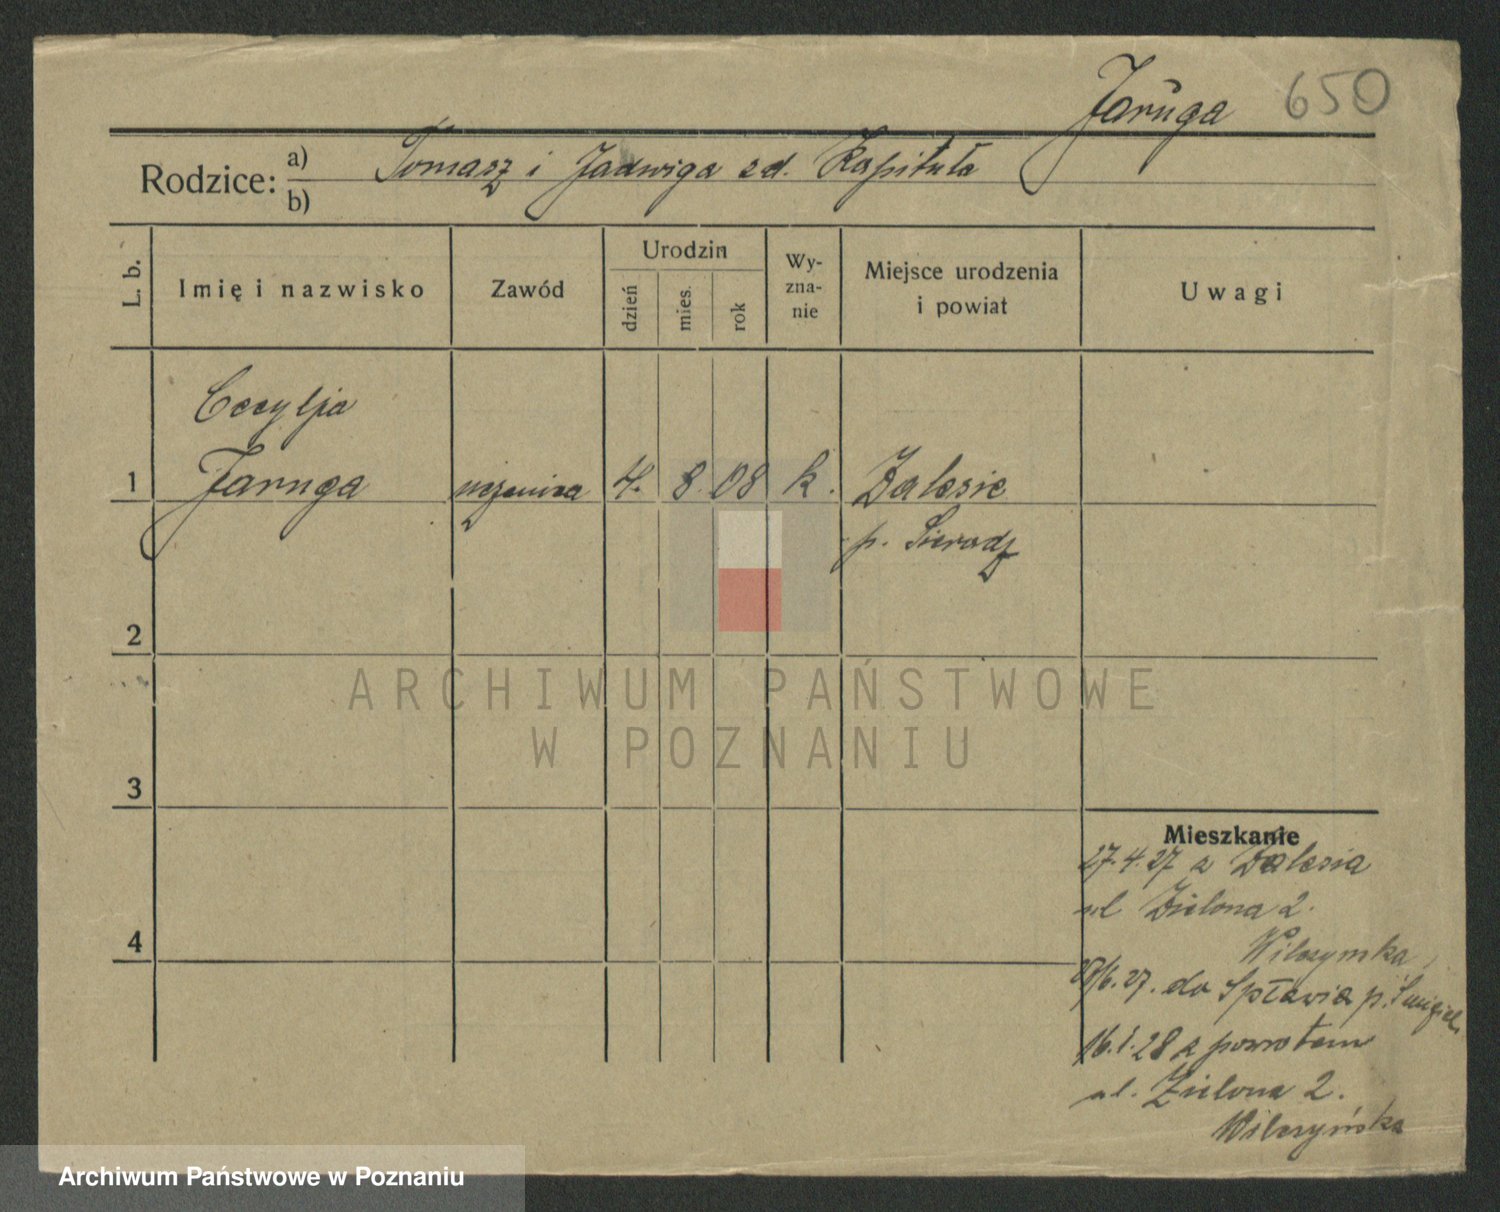 Jaruga 650
Rodzice: a) Tomasz i Jadwiga zd. Kapituła
b)
L. b. Imię i nazwisko Zawód Urodzin dzień mies. rok Wyznanie Miejsce urodzenia i powiat Uwagi
Cecylja
1 Jaruga uczenica 4. 8. 08 k. Zalesie
p. Sieradz
2
ARCHIWUM PAŃSTWOWE
W POZNANIU
3
Mieszkanie
27.4.27 z Zalesia
ul Zielona 2.
Wilczyńska
28/6.27. do Spławia p. Śmigiel
16.1.28 z powrotem
ul. Zielona 2.
Wilczyńska
4
Archiwum Państwowe w Poznaniu